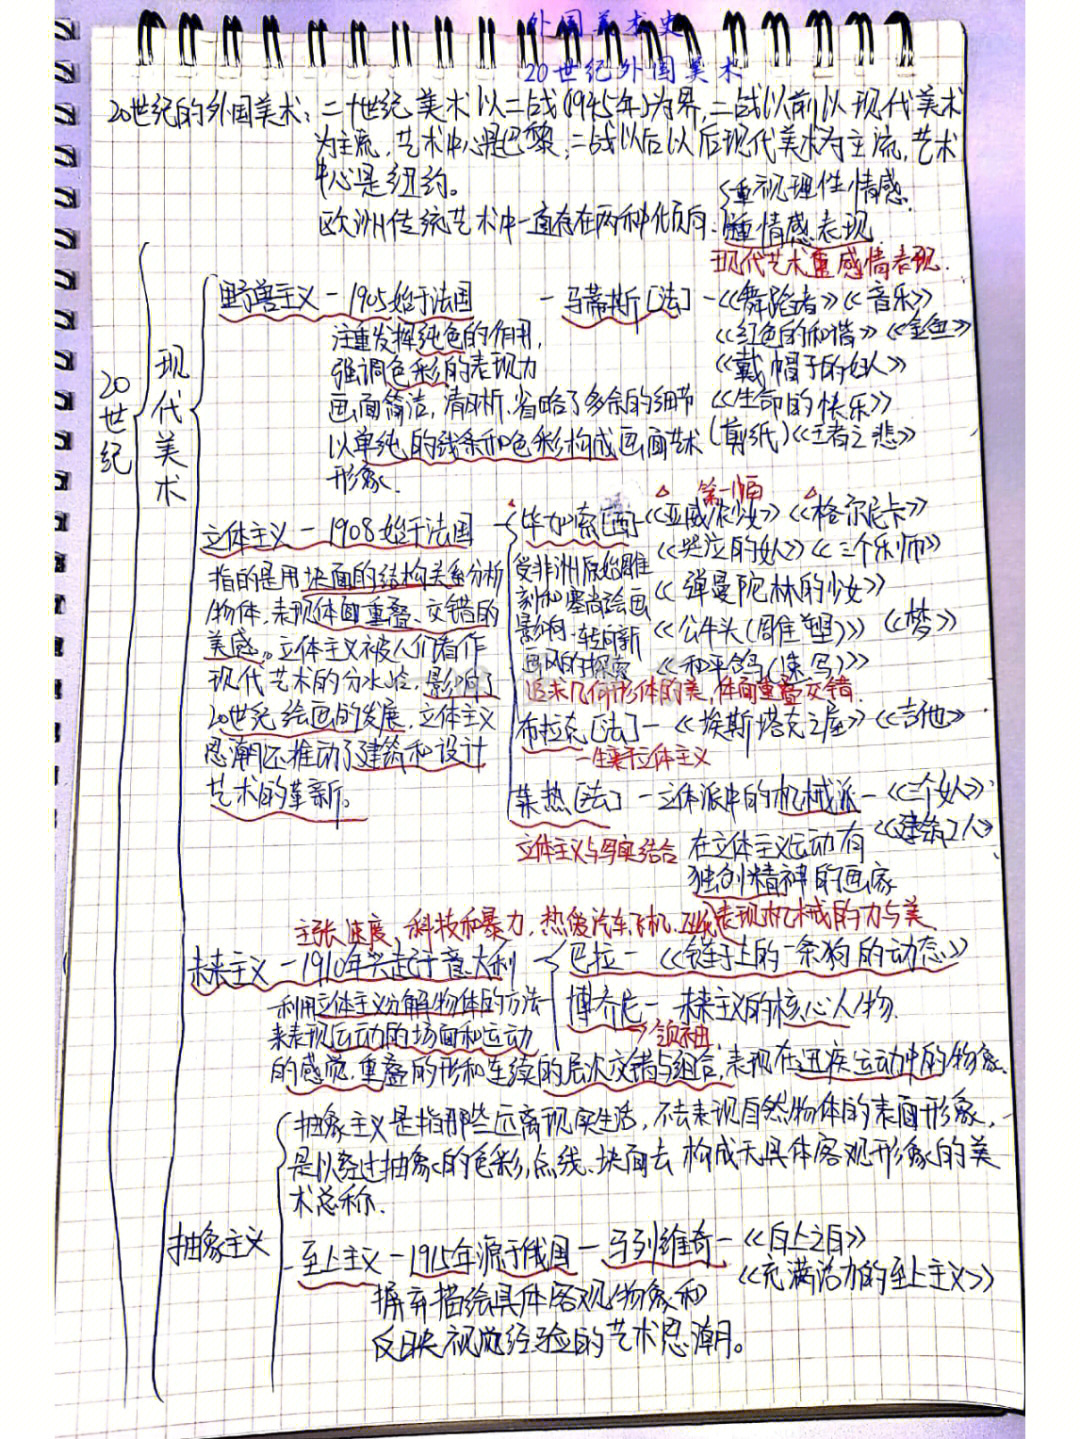 外国美术史
20世纪外国美术
20世纪的外国美术：二十世纪美术以二战(1945年)为界,二战以前以现代美术
为主流,艺术中心是巴黎;二战以后以后现代美术为主流,艺术
中心是纽约。
欧洲传统艺术中一直存在两种倾向:
重视理性情感.
重情感表现.
现代艺术重感情表现.
20世纪
现代美术
野兽主义－1905始于法国
－马蒂斯[法]－《舞蹈者》《音乐》
注重发挥纯色的作用,
《红色的和谐》《金鱼》
强调色彩的表现力
《戴帽子的妇人》
画面简洁,清晰,省略了多余的细节
《生命的快乐》
以单纯的线条和色彩构成画面艺术
(剪纸)《王者之悲》
形象.
立体主义－1908始于法国
第一幅
毕加索[西]－《亚威农少女》《格尔尼卡》
《哭泣的女人》《三个乐师》
指的是用块面的结构关系分析
受非洲原始雕
《弹曼陀林的少女》
物体,表现体面重叠、交错的
刻和塞尚绘画
《公牛头(雕塑)》《梦》
美感。立体主义被人们看作
影响,转向新
现代艺术的分水岭,影响了
画风的探索
《和平鸽(速写)》
追求几何形体的美,体面重叠交错
20世纪绘画的发展,立体主义
布拉克[法]－《埃斯塔克之屋》《吉他》
思潮还推动了建筑和设计
一生来于立体主义
艺术的革新。
莱热[法]－立体派中的机械派－《三个女人》
《建筑工人》
立体主义与写实结合
在立体主义运动有
独创精神的画家
主张速度、科技和暴力,热爱汽车飞机,表现机械的力与美
未来主义－1910年兴起于意大利
巴拉－《链子上的一条狗的动态》
利用立体主义分解物体的方法
博乔尼－未来主义的核心人物.
来表现运动的场面和运动
→领袖
的感觉,重叠的形和连续的层次交错与组合,表现在迅疾运动中的物象.
抽象主义
抽象主义是指那些远离现实生活,不去表现自然物体的表面形象,
是以经过抽象的色彩,点线、块面去构成无具体客观形象的美
术总称.
至上主义－1915年源于俄国－马列维奇－《白上之白》
《充满活力的至上主义》
摒弃描绘具体客观物象和
反映视觉经验的艺术思潮。